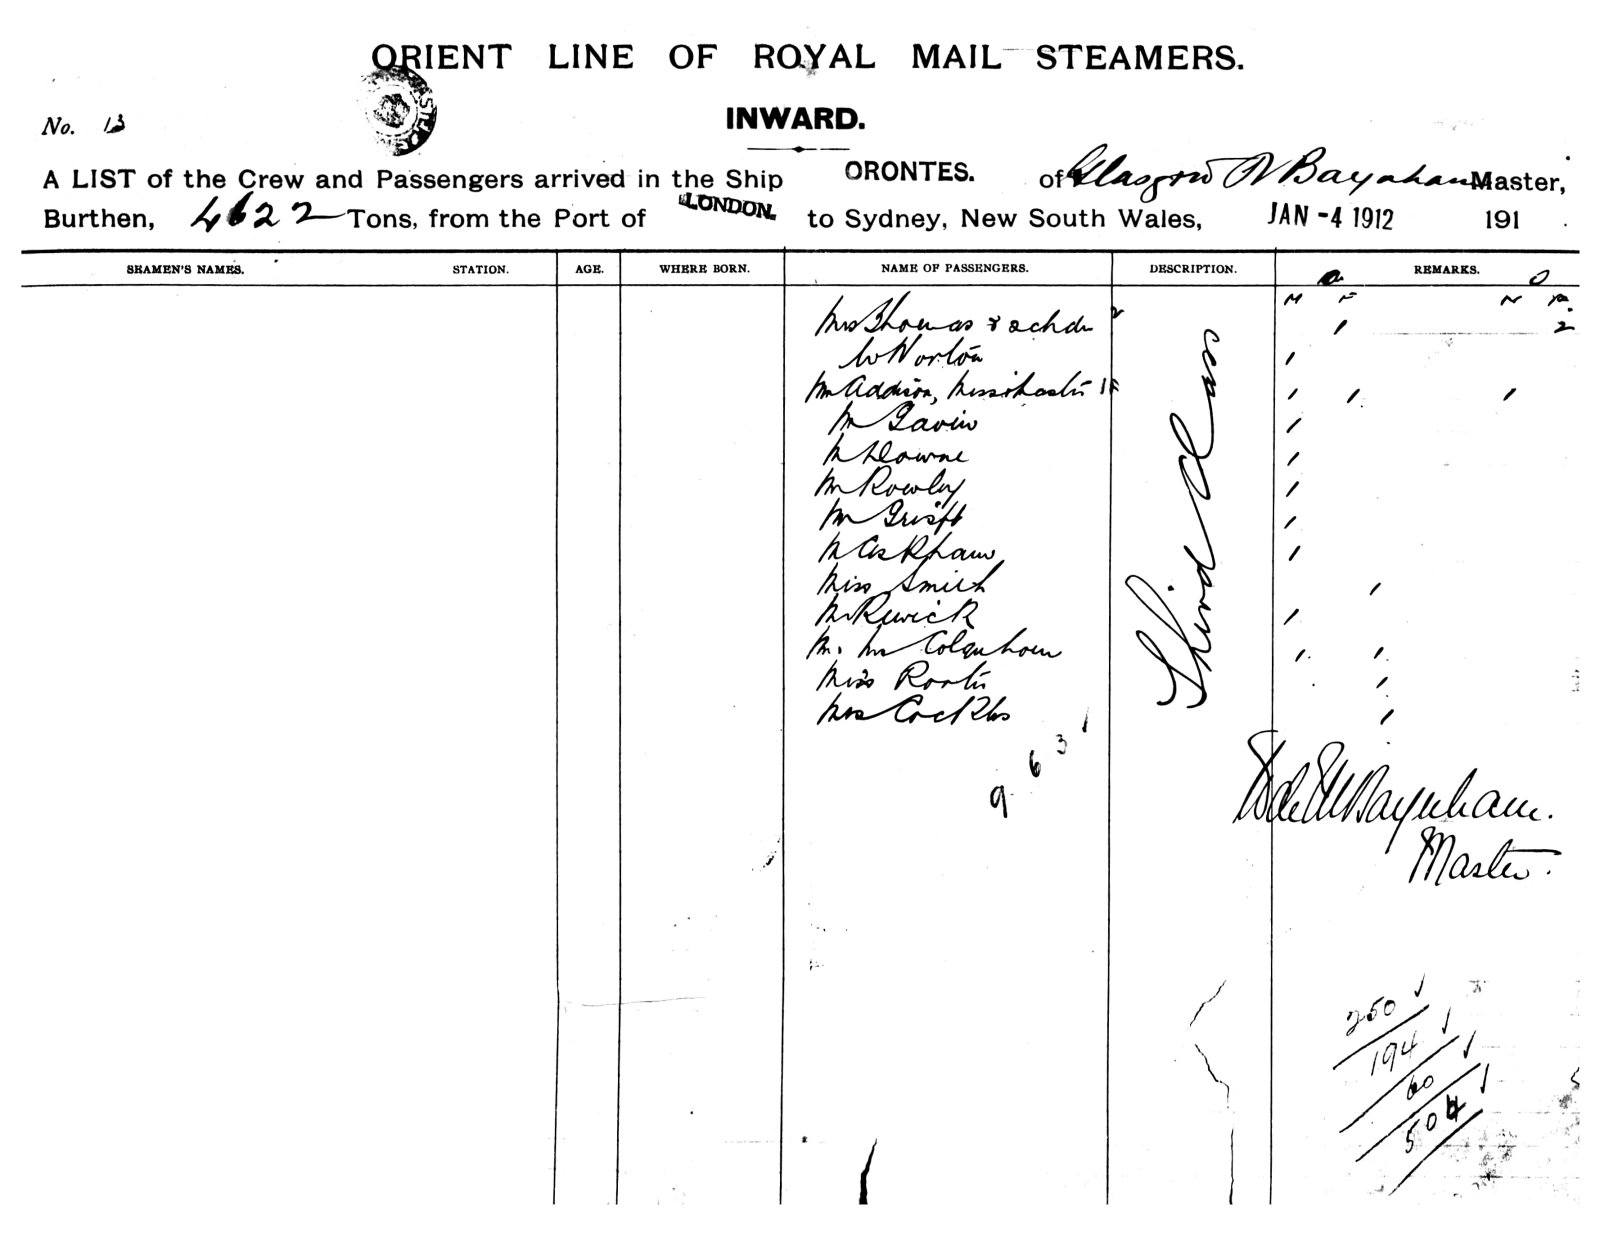 ORIENT LINE OF ROYAL MAIL STEAMERS.
No. 13
INWARD.
A LIST of the Crew and Passengers arrived in the Ship ORONTES. of Glasgow Baynham Master,
Burthen, 4622 Tons, from the Port of LONDON. to Sydney, New South Wales, JAN -4 1912 191 .
SEAMEN'S NAMES. STATION. AGE. WHERE BORN. NAME OF PASSENGERS. DESCRIPTION. REMARKS.
M F M F
Mrs Thomas & 2 chdn 2 1 2
Mr Norton 1
Mr Addison, Miss & Master 1 1 1
Mr Gavin 1
Mr Downe 1
Mr Rowley 1
Mr 1
Mr Askham 1
Miss Smith 1
Mr Rewick 1
Mr. Mrs Colquhoun 1 1
Miss 1
Mrs Cockles 1
Third Class
9 6 3 1
Baynham.
Master.
250
194
60
504